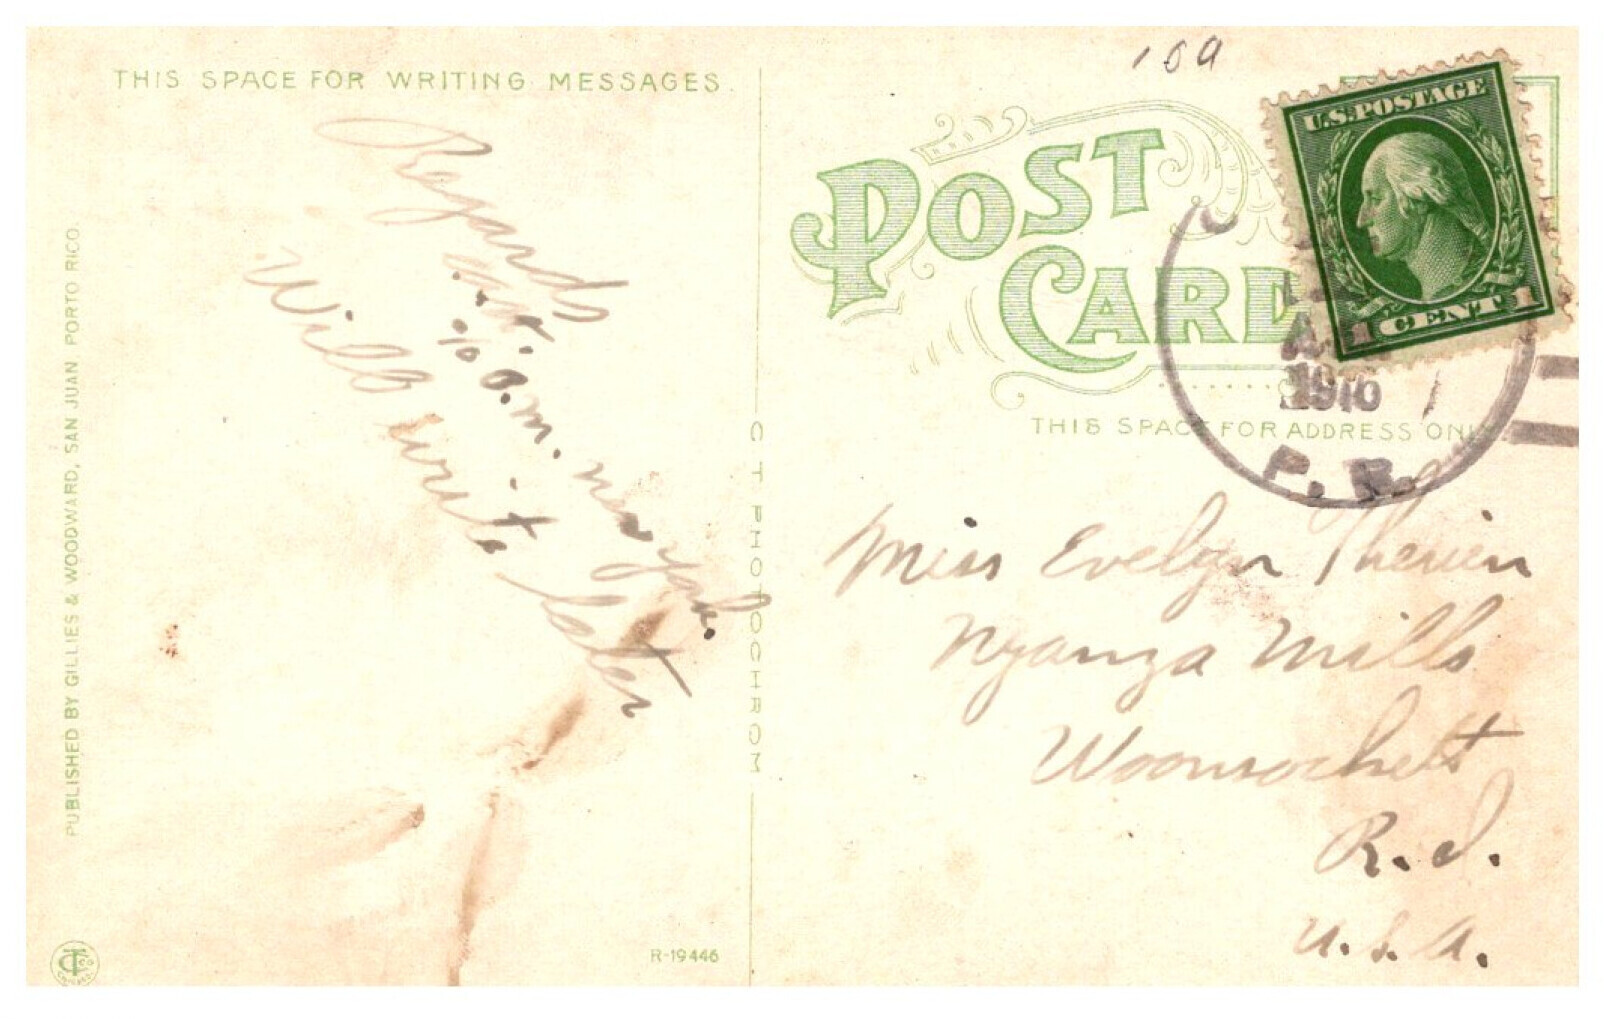 THIS SPACE FOR WRITING MESSAGES.
Regards
Will write later
PUBLISHED BY GILLIES & WOODWARD, SAN JUAN PORTO RICO.
C T PHOTOCHROM
R-19446
109
POST
CARD
U.S. POSTAGE
1 CENT 1
1916
P. R.
THIS SPACE FOR ADDRESS ONL
Miss Evelyn Therien
Nyanza Mills
Woonsockett
R.I.
U.S.A.